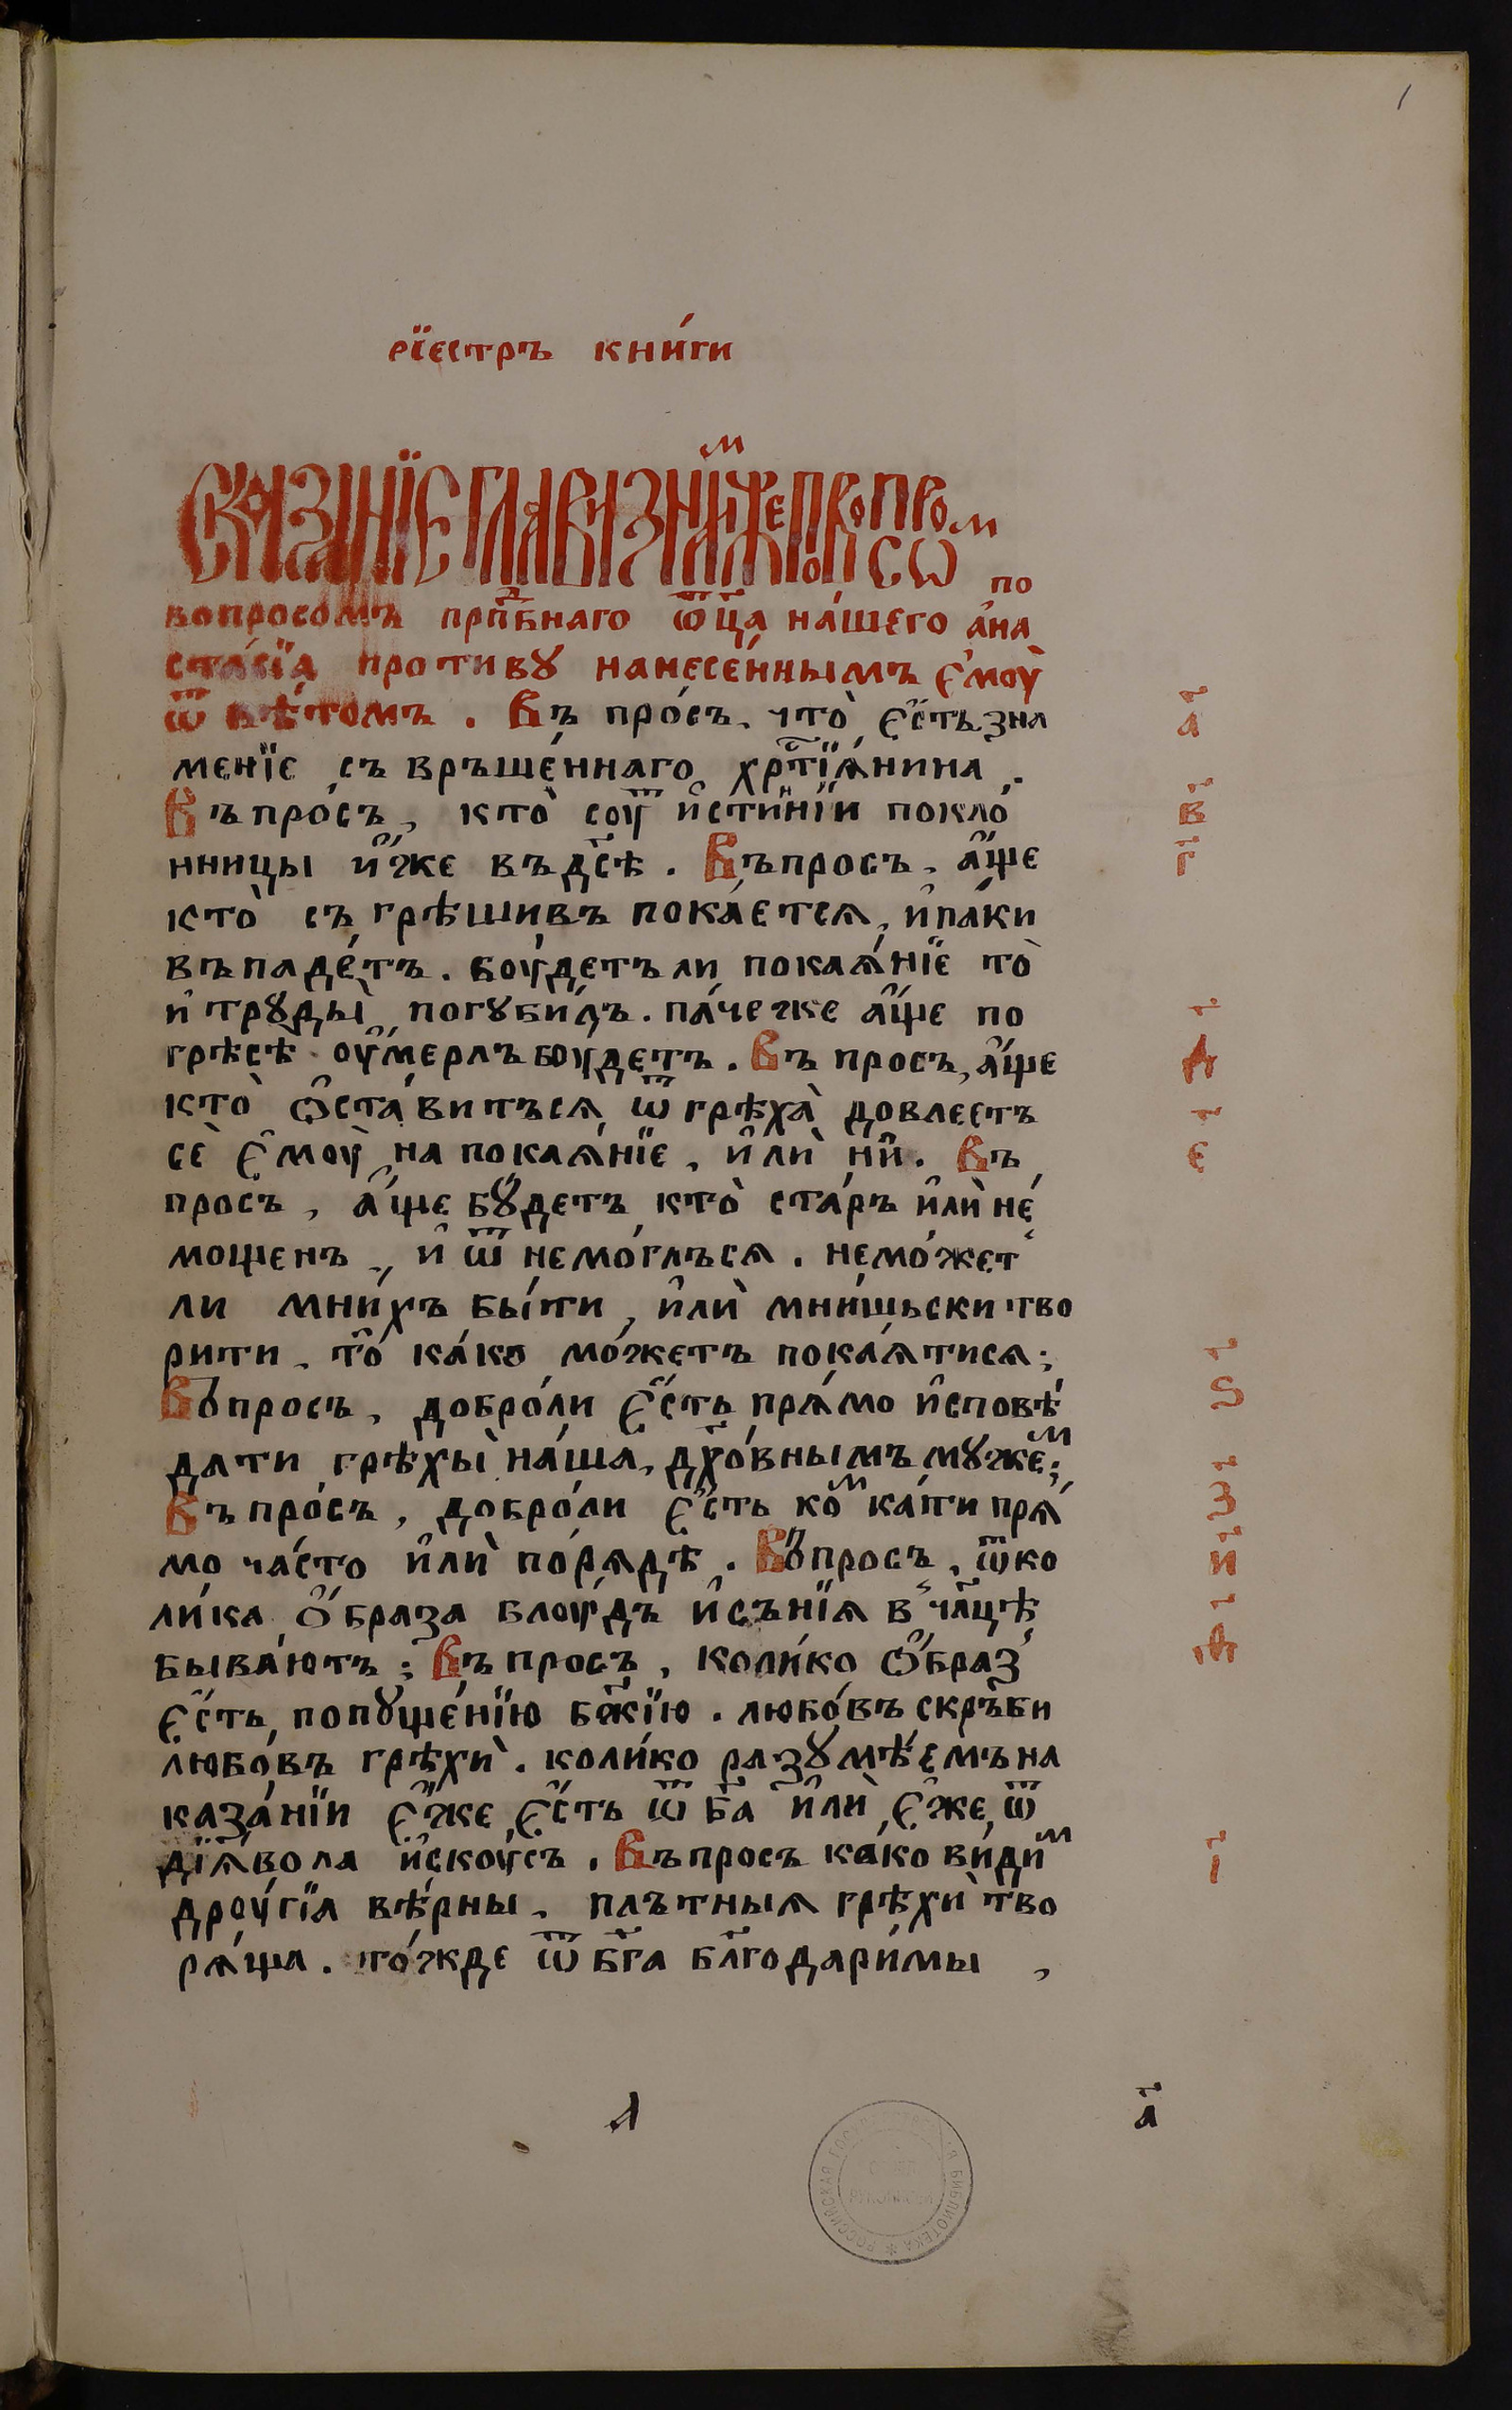 1
рїестръ кни́ги
Сказанїе главизнамъ иже по вопросѡм по
вопросомъ прпⷣбнаго ѿц҃а на́шего а́на
ста́сїа противꙋ нанесе́ннымъ є҆моу̀
ѿвѣ́томъ . Въ про́съ. что̀ є҆́сть зна
менїе съ връше́ннаго хрⷭ҇тїѧ́нина . а҃
Въ про́съ, кто̀ соуⷮ и҆́стиⷩ҇нїи покло́ в҃
нницы и҆́же въ дс҃ѣ . Въпросъ. а҆́ще г҃
кто̀ съгрѣши́въ пока́етсѧ, и҆ па́ки
въпаде́тъ . боу́детъ ли покаѧ́нїе то̀
и҆ трꙋды̀ погꙋби́лъ . па́че же а҆́ще по д҃
грѣсѣ̀ оу҆́мерлъ боу́детъ . Въ просъ, а҆́ще
кто̀ ѻ҆ста́витъсѧ ѿ грѣха̀ довлеетъ є҃
сѐ є҆моу̀ на покаѧ́нїе , и҆лѝ нѝ . Въ
просъ , а҆́ще бꙋ́детъ кто̀ ста́ръ и҆лѝ не́
мощенъ , и҆ ѿ немо́глъсѧ . не мо́жет
ли мни́хъ бы́ти , и҆лѝ мни́шьски тво
рити . то̀ ка́ко мо́жетъ покаѧ́тисѧ ; ѕ҃
Вопросъ , добро́ли є҆́сть прѧ́мо и҆сповѣ́
дати грѣхы̀ на́ша , дх҃о́внымъ мꙋжеⷨ ; з҃
Въ про́съ , добро́ли є҆́сть коⷨка́ти прѧ́
мо ча́сто и҆лѝ по́рѧдѣ . Вопросъ . ѿ ко и҃
ли́ка ѻ҆́браза блоу́дъ и҆ сънїѧ в чл҃цѣ
быва́ютъ ; Въ просъ , коли́ко ѻ҆́браз ѳ҃
є҆́сть попꙋще́нїю бж҃їю . любо́въ скръ́би
любо́въ грѣхѝ . коли́ко разꙋмѣ́емъ на
каза́нїи є҆́же є҆́сть ѿ ба҃ и҆лѝ є҆́же ѿ
дїѧ́вола и҆скоу́съ . Въпросъ ка́ко ви́диⷨ і҃
дроугі́а вѣ́рны . плътныѧ грѣхѝ тво
рѧ́ща . то́жде ѿ бг҃а бл҃годари́мы ,
а҃
РОССИЙСКАЯ ГОСУДАРСТВЕННАЯ БИБЛИОТЕКА